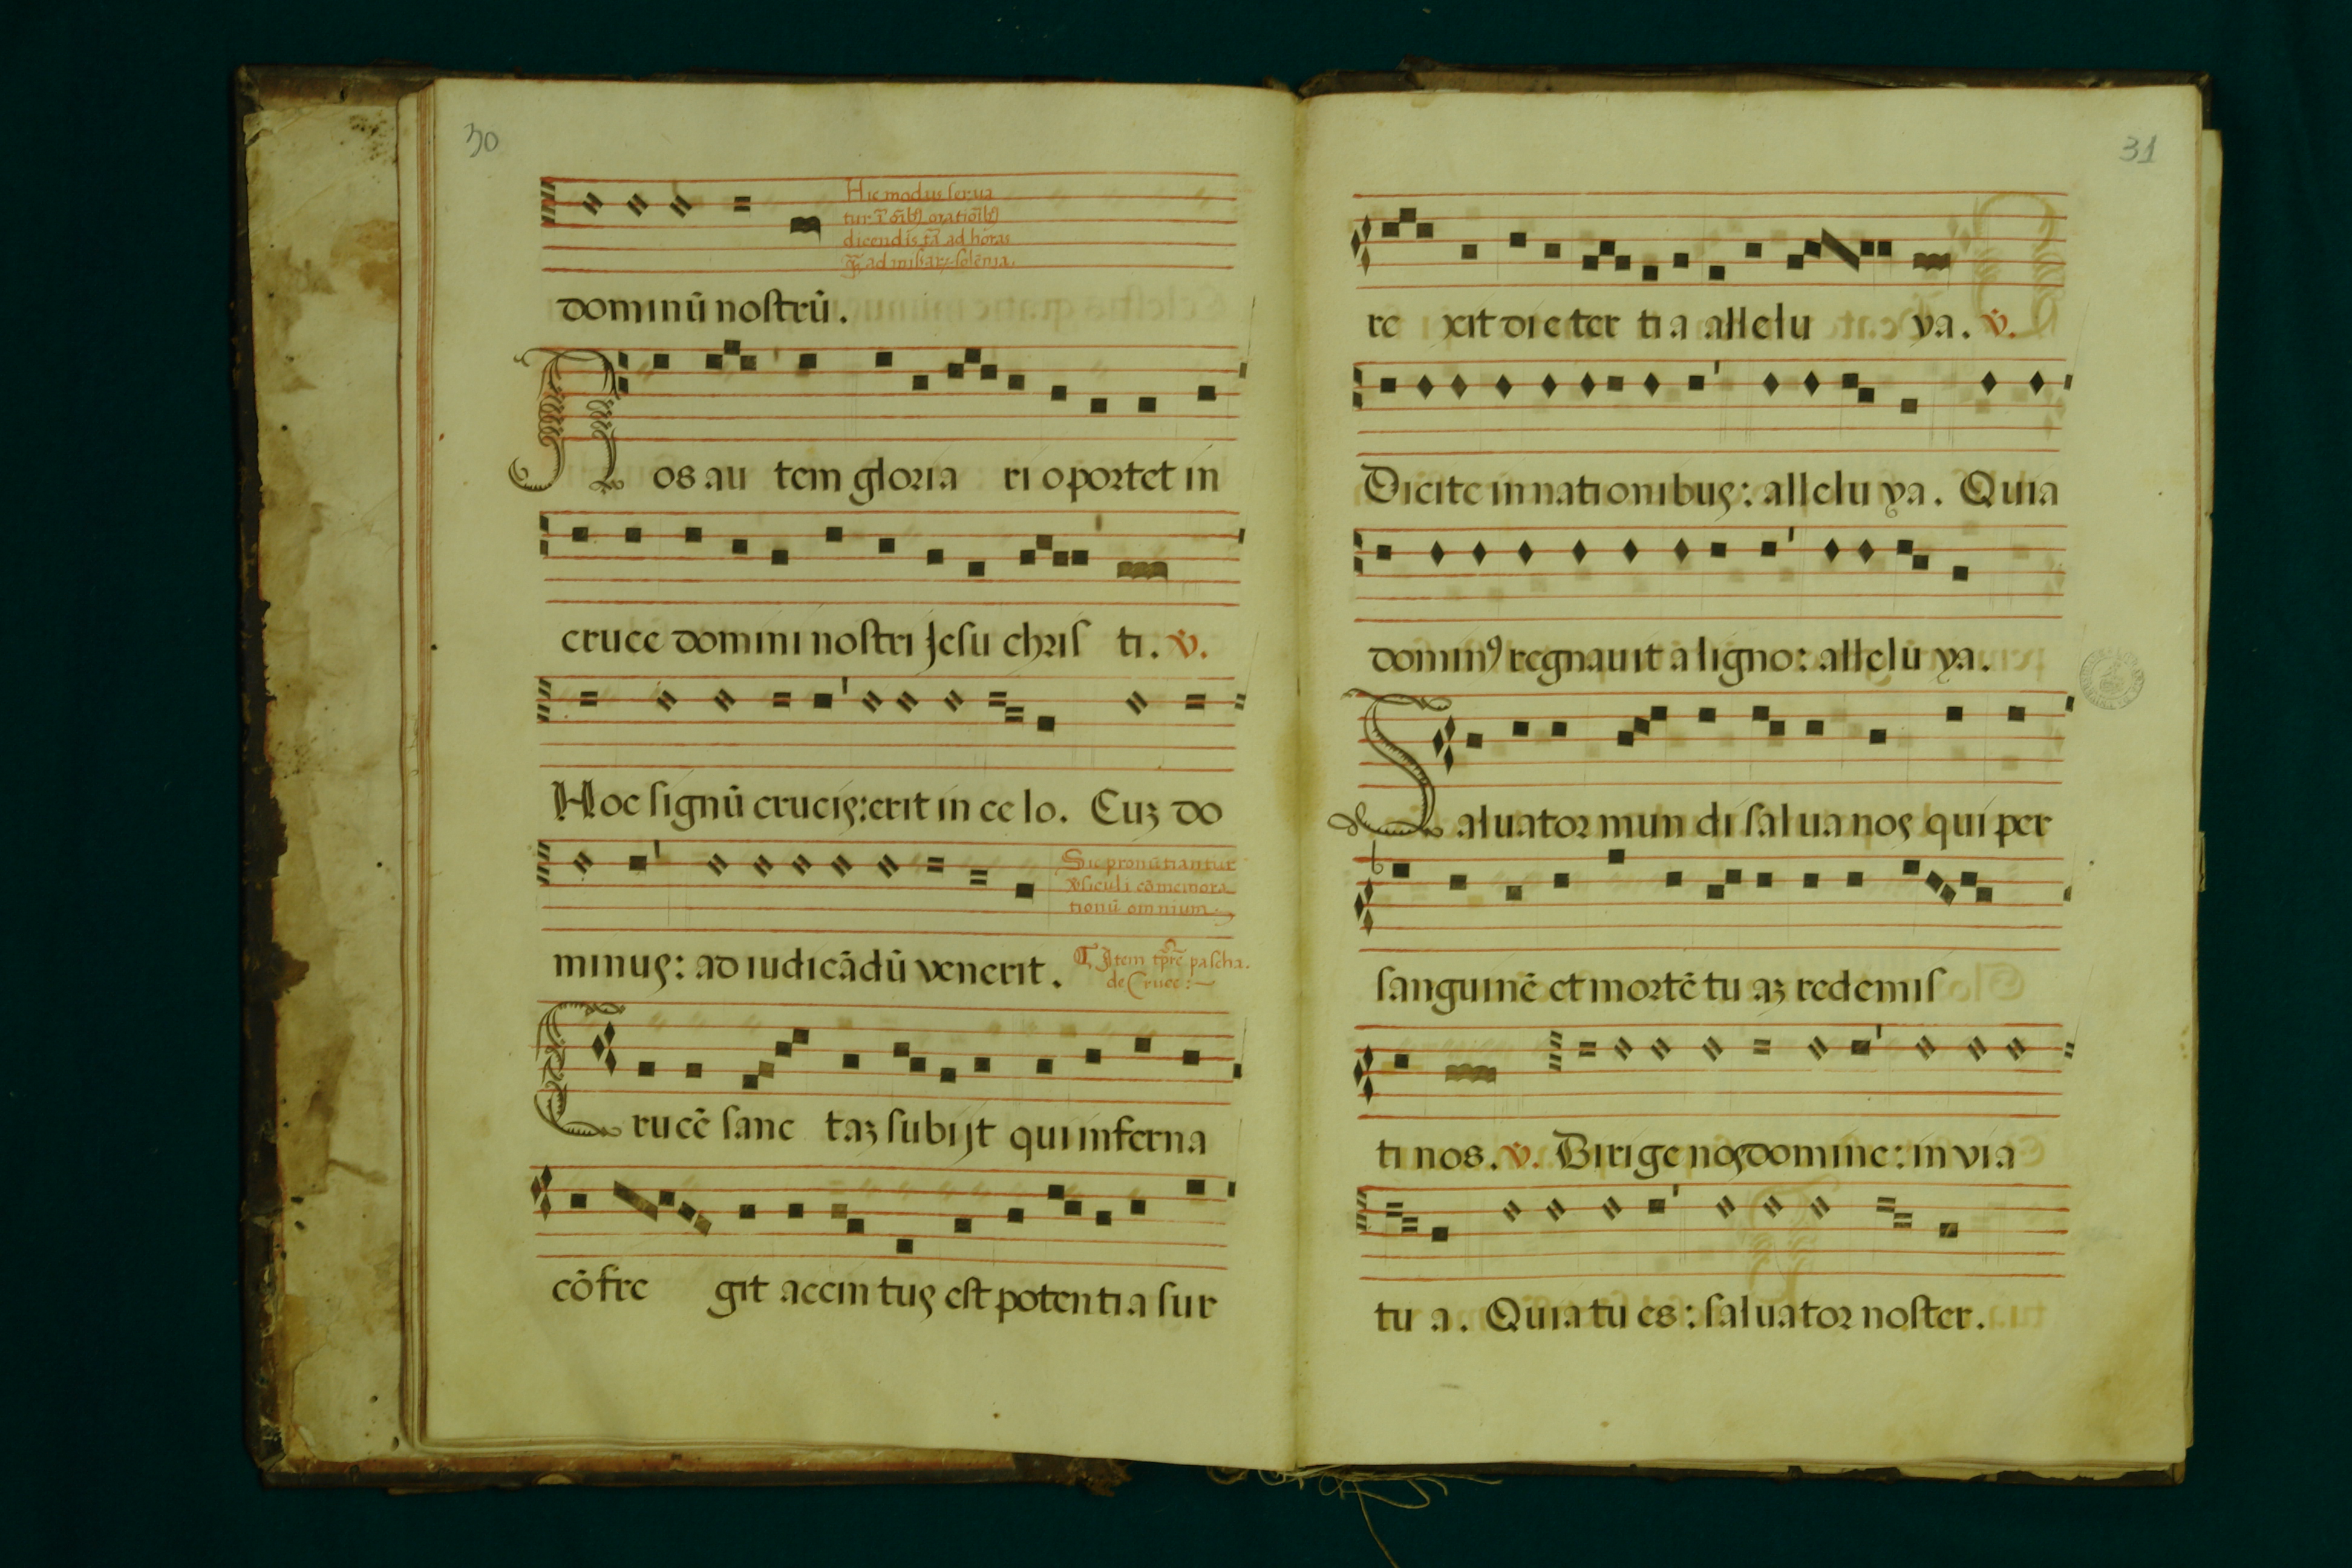 30
Hic modus serua
tur ī oīb⁹ orationib⁹
dicendis tā ad horas
q̄ ad missarū solēnia.
dominū nostrū.
Nos au tem gloria ri oportet in
cruce domini nostri Jesu chris ti. v̇.
Hoc signū crucis: erit in ce lo. Cuʒ do
Sic pronūtiantur
v̇siculi cōmemora
tionū omnium.
minus: ad iudicādū venerit.
¶ Item tp̄re pascha.
de Cruce:
Crucē sanc taʒ subijt qui inferna
cōfre git accin tus est potentia sur
31
re xit die ter ti a allelu ya. v̇.
Dicite in nationibus: allelu ya. Quia
domin⁹ regnauit a ligno: allelu ya.
Saluator mun di salua nos qui per
sanguinē et mortē tu aʒ redemis
ti nos. v̇. Dirige nos domine: in via
tu a. Quia tu es: saluator noster.